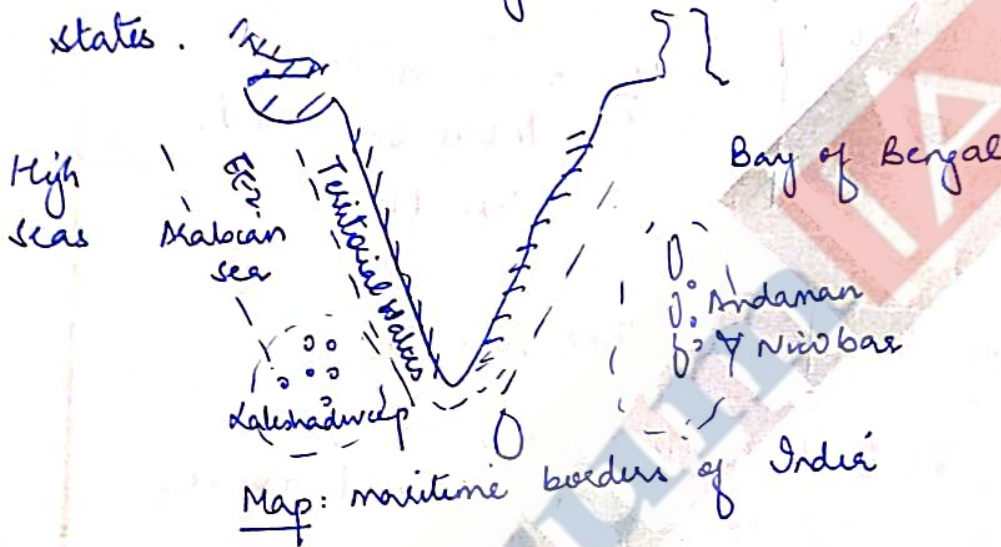 states.
High
seas
EEZ
Arabian
sea
Territorial Waters
Bay of Bengal
Andaman
& Nicobar
Lakshadweep
Map: maritime borders of India